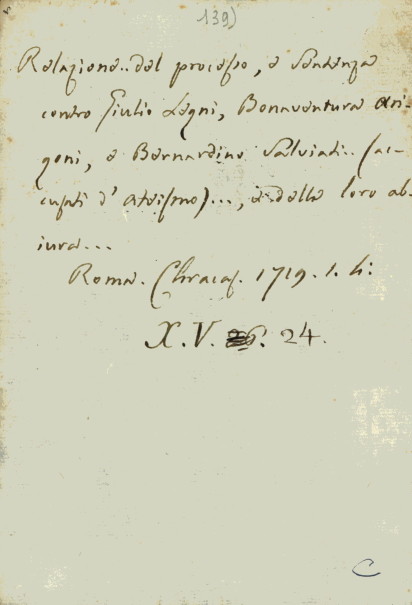 139)
Relazione.. del processo, e Sentenza
contro Giulio Legni, Bonaventura Ari-
goni, e Bernardino Salviati.. (ac-
cusati d'Ateismo)..., e della loro ab-
iura...
Roma. Chracas. 1719. 1. h:
X. V. 24.
C